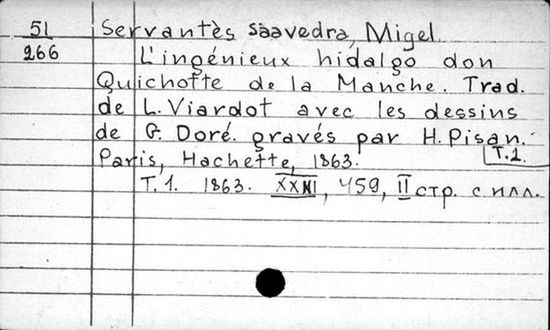 51 Servantès Saavedra, Migel.
266 L'ingénieux hidalgo don
Quichotte de la Manche. Trad.
de L. Viardot avec les dessins
de G. Doré. gravés par H. Pisan.
Paris, Hachette, 1863. T.1.
T. 1. 1863. 459, II стр. с илл.